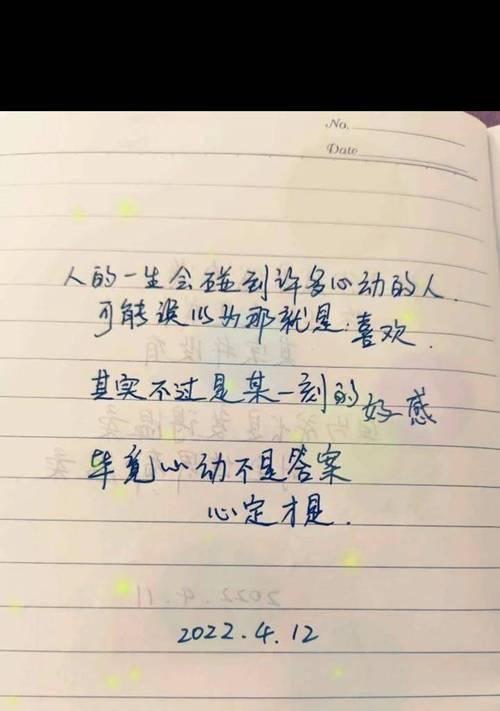 No.
Date
人的一生会碰到许多心动的人.
可能误以为那就是.喜欢.
其实不过是某一刻的好感
毕竟心动不是答案
心定才是.
2022.4.11
2022.4.12